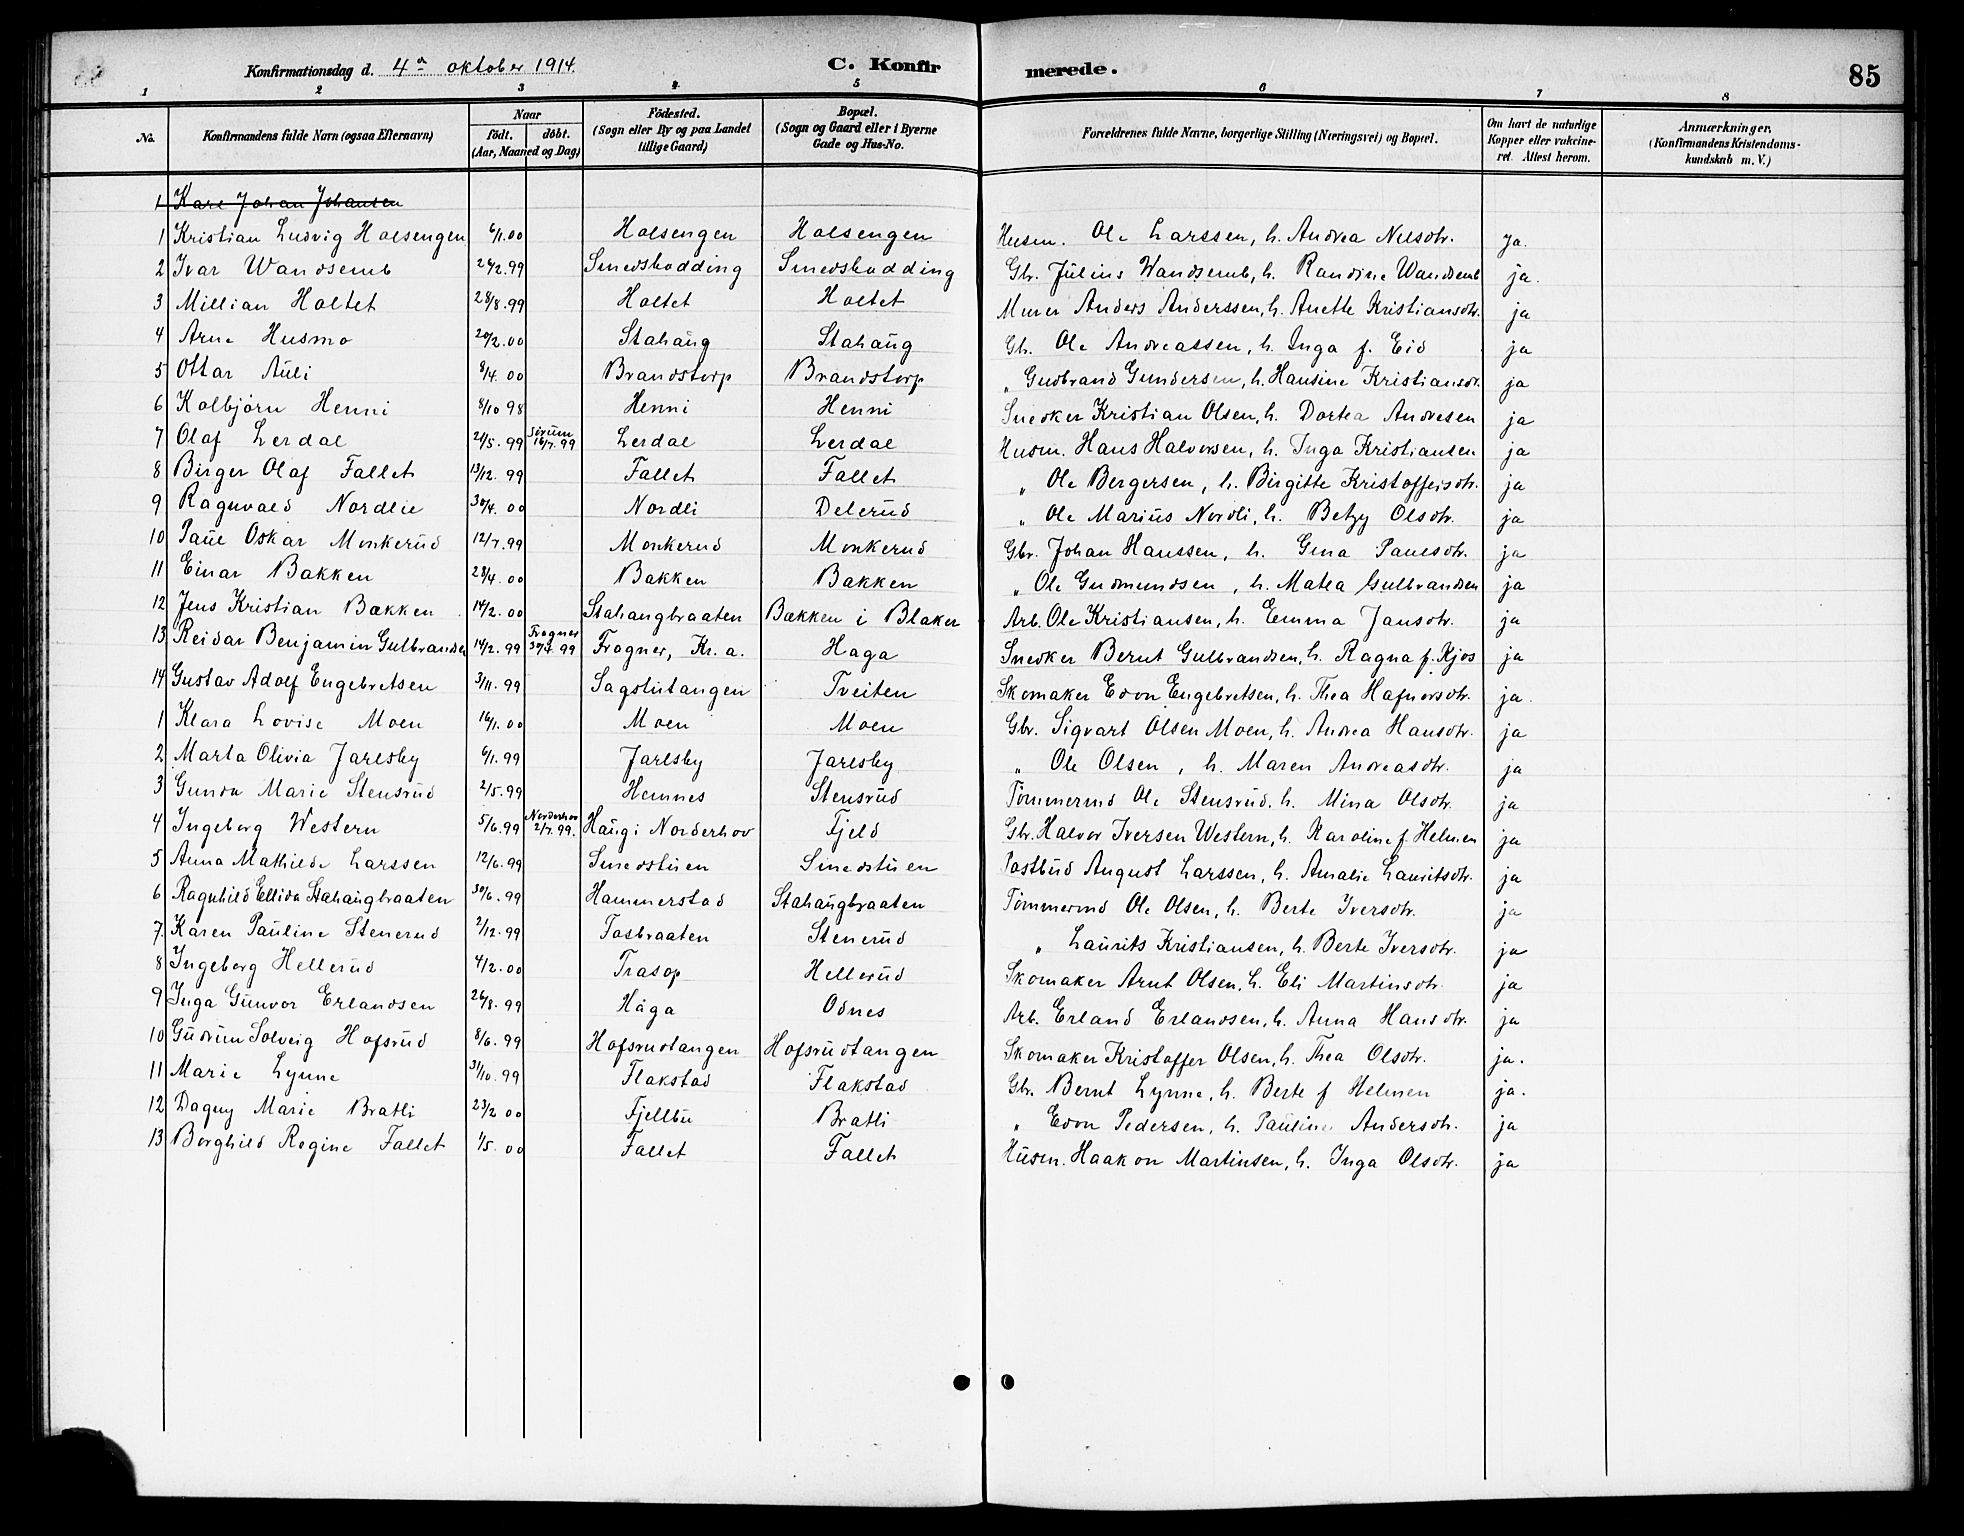 Konfirmationsdag d. 4de oktober 1914. C. Konfirmerede. 85
1 2 3 4 5 6 7 8
No. Konfirmandens fulde Navn (ogsaa Efternavn) Naar født. døbt. (Aar, Maaned og Dag) Fødested. (Sogn eller By og paa Landet tillige Gaard) Bopæl. (Sogn og Gaard eller i Byerne Gade og Hus-No. Forældrenes fulde Navne, borgerlige Stilling (Næringsvei) og Bopæl. Om havt de naturlige Kopper eller vakcineret. Attest herom. Anmærkninger. (Konfirmandens Kristendomskundskab m. V.)
1 Karl Johan Johansen
1 Kristian Ludvig Holsengen 6/1.00 Holsengen Holsengen Husm. Ole Larssen, h. Andrea Nilsdtr. ja.
2 Ivar Wandsemb 24/2.99 Smedskodding Smedskodding Gbr. Julius Wandsemb, h. Randine Wandsemb ja.
3 Millian Holtet 28/8.99 Holtet Holtet Murer Anders Anderssen, h. Anette Kristiansdtr. ja
4 Arne Husmo 20/2.00 Stahaug Stahaug Gb. Ole Andreassen, h. Inga f. Eid ja
5 Ottar Auli 8/4.00 Brandstorp Brandstorp „ Gudbrand Gundersen, h. Hansine Kristiansdtr. ja
6 Kolbjørn Henni 8/10 98 Henni Henni Snedker Kristian Olsen, h. Dortea Andresen ja
7 Olaf Lerdal 21/5.99 Sørum 16/7.99 Lerdal Lerdal Husm. Hans Halvorsen, h. Inga Kristiansen ja
8 Birger Olaf Fallet 13/12.99 Fallet Fallet „ Ole Bergersen, h. Birgitte Kristoffersdtr. ja
9 Ragnvald Nordlie 30/4.00 Nordli Delerud „ Ole Marius Nordli, h. Betzy Olsdtr. ja
10 Paul Oskar Monkerud 12/7.99 Monkerud Monkerud Gbr. Johan Hanssen, h. Gina Paulsdtr. ja
11 Einar Bakken 28/4.00 Bakken Bakken „ Ole Gudmundsen, h. Matea Gulbrandsen ja
12 Jens Kristian Bækken 14/2.00 Stahaugbraaten Bækken i Blaker Arb. Ole Kristiansen, h. Emma Jansdtr. ja
13 Reidar Benjamin Gulbrandsen 14/2.99 Frogner 30/7 99 Frogner, Kr.a. Haga Snedker Bernt Gulbrandsen, h. Ragna f. Kjos ja
14 Gustav Adolf Engebretsen 3/11.99 Sagstutangen Tveiten Skomaker Edvn Engebretsen, h. Thea Hafnorsdtr. ja.
1 Klara Lovise Moen 16/1.00 Moen Moen Gbr. Sigvart Olsen Moen, h. Andrea Hansdtr. ja
2 Marta Olivia Jarlsby 6/1.99 Jarlsby Jarlsby „ Ole Olsen, h. Maren Andreasdtr. ja
3 Gunda Marie Stensrud 2/5.99 Hemnes Stensrud Tømmermd Ole Stensrud. h. Mina Olsdtr. ja
4 Ingeborg Western 5/6.99 Norderhov 2/7.99. Haug i Norderhov Fjeld Gbr. Halvor Iversen Western, h. Karoline f. Helmen ja
5 Anna Mathilde Larssen 12/6.99 Smedstuen Smedstuen Postbud August Larssen, h. Amalie Lauritsdtr. ja
6 Ragnhild Ellida Stahaugbraaten 30/6.99 Hammerstad Stahaugbraaten Tømmermd Ole Olsen, h. Berte Iversdtr. ja
7. Karen Pauline Stenerud 2/12.99 Tosbraaten Stenerud „ Laurits Kristiansen, h. Berte Iversdtr. ja
8 Ingeborg Hellerud 4/2.00 Trasop Hellerud Skomaker Arnt Olsen, h. Eli Martinsdtr. ja
9 Inga Gunvor Erlandsen 26/8.99 Håga Odnes Arb. Erland Erlandsen, h. Anna Hansdtr. ja
10 Gudrun Solveig Hofsrud 8/6.99 Hofsrudtangen Hofsrudtangen Skomaker Kristoffer Olsen, h. Thea Olsdtr. ja.
11 Marie Lynne 31/10.99 Flakstad Flakstad Gbr. Bernt Lynne, h. Berte f Helmen ja.
12 Dagny Marie Bratli 23/2 00 Fjellbu Bratli „ Edvn Pedersen, h. Pauline Andersdtr. ja
13 Borghild Regine Fallet 1/5.00 Fallet Fallet Husm. Haakon Martinsen, h. Inga Olsdtr. ja